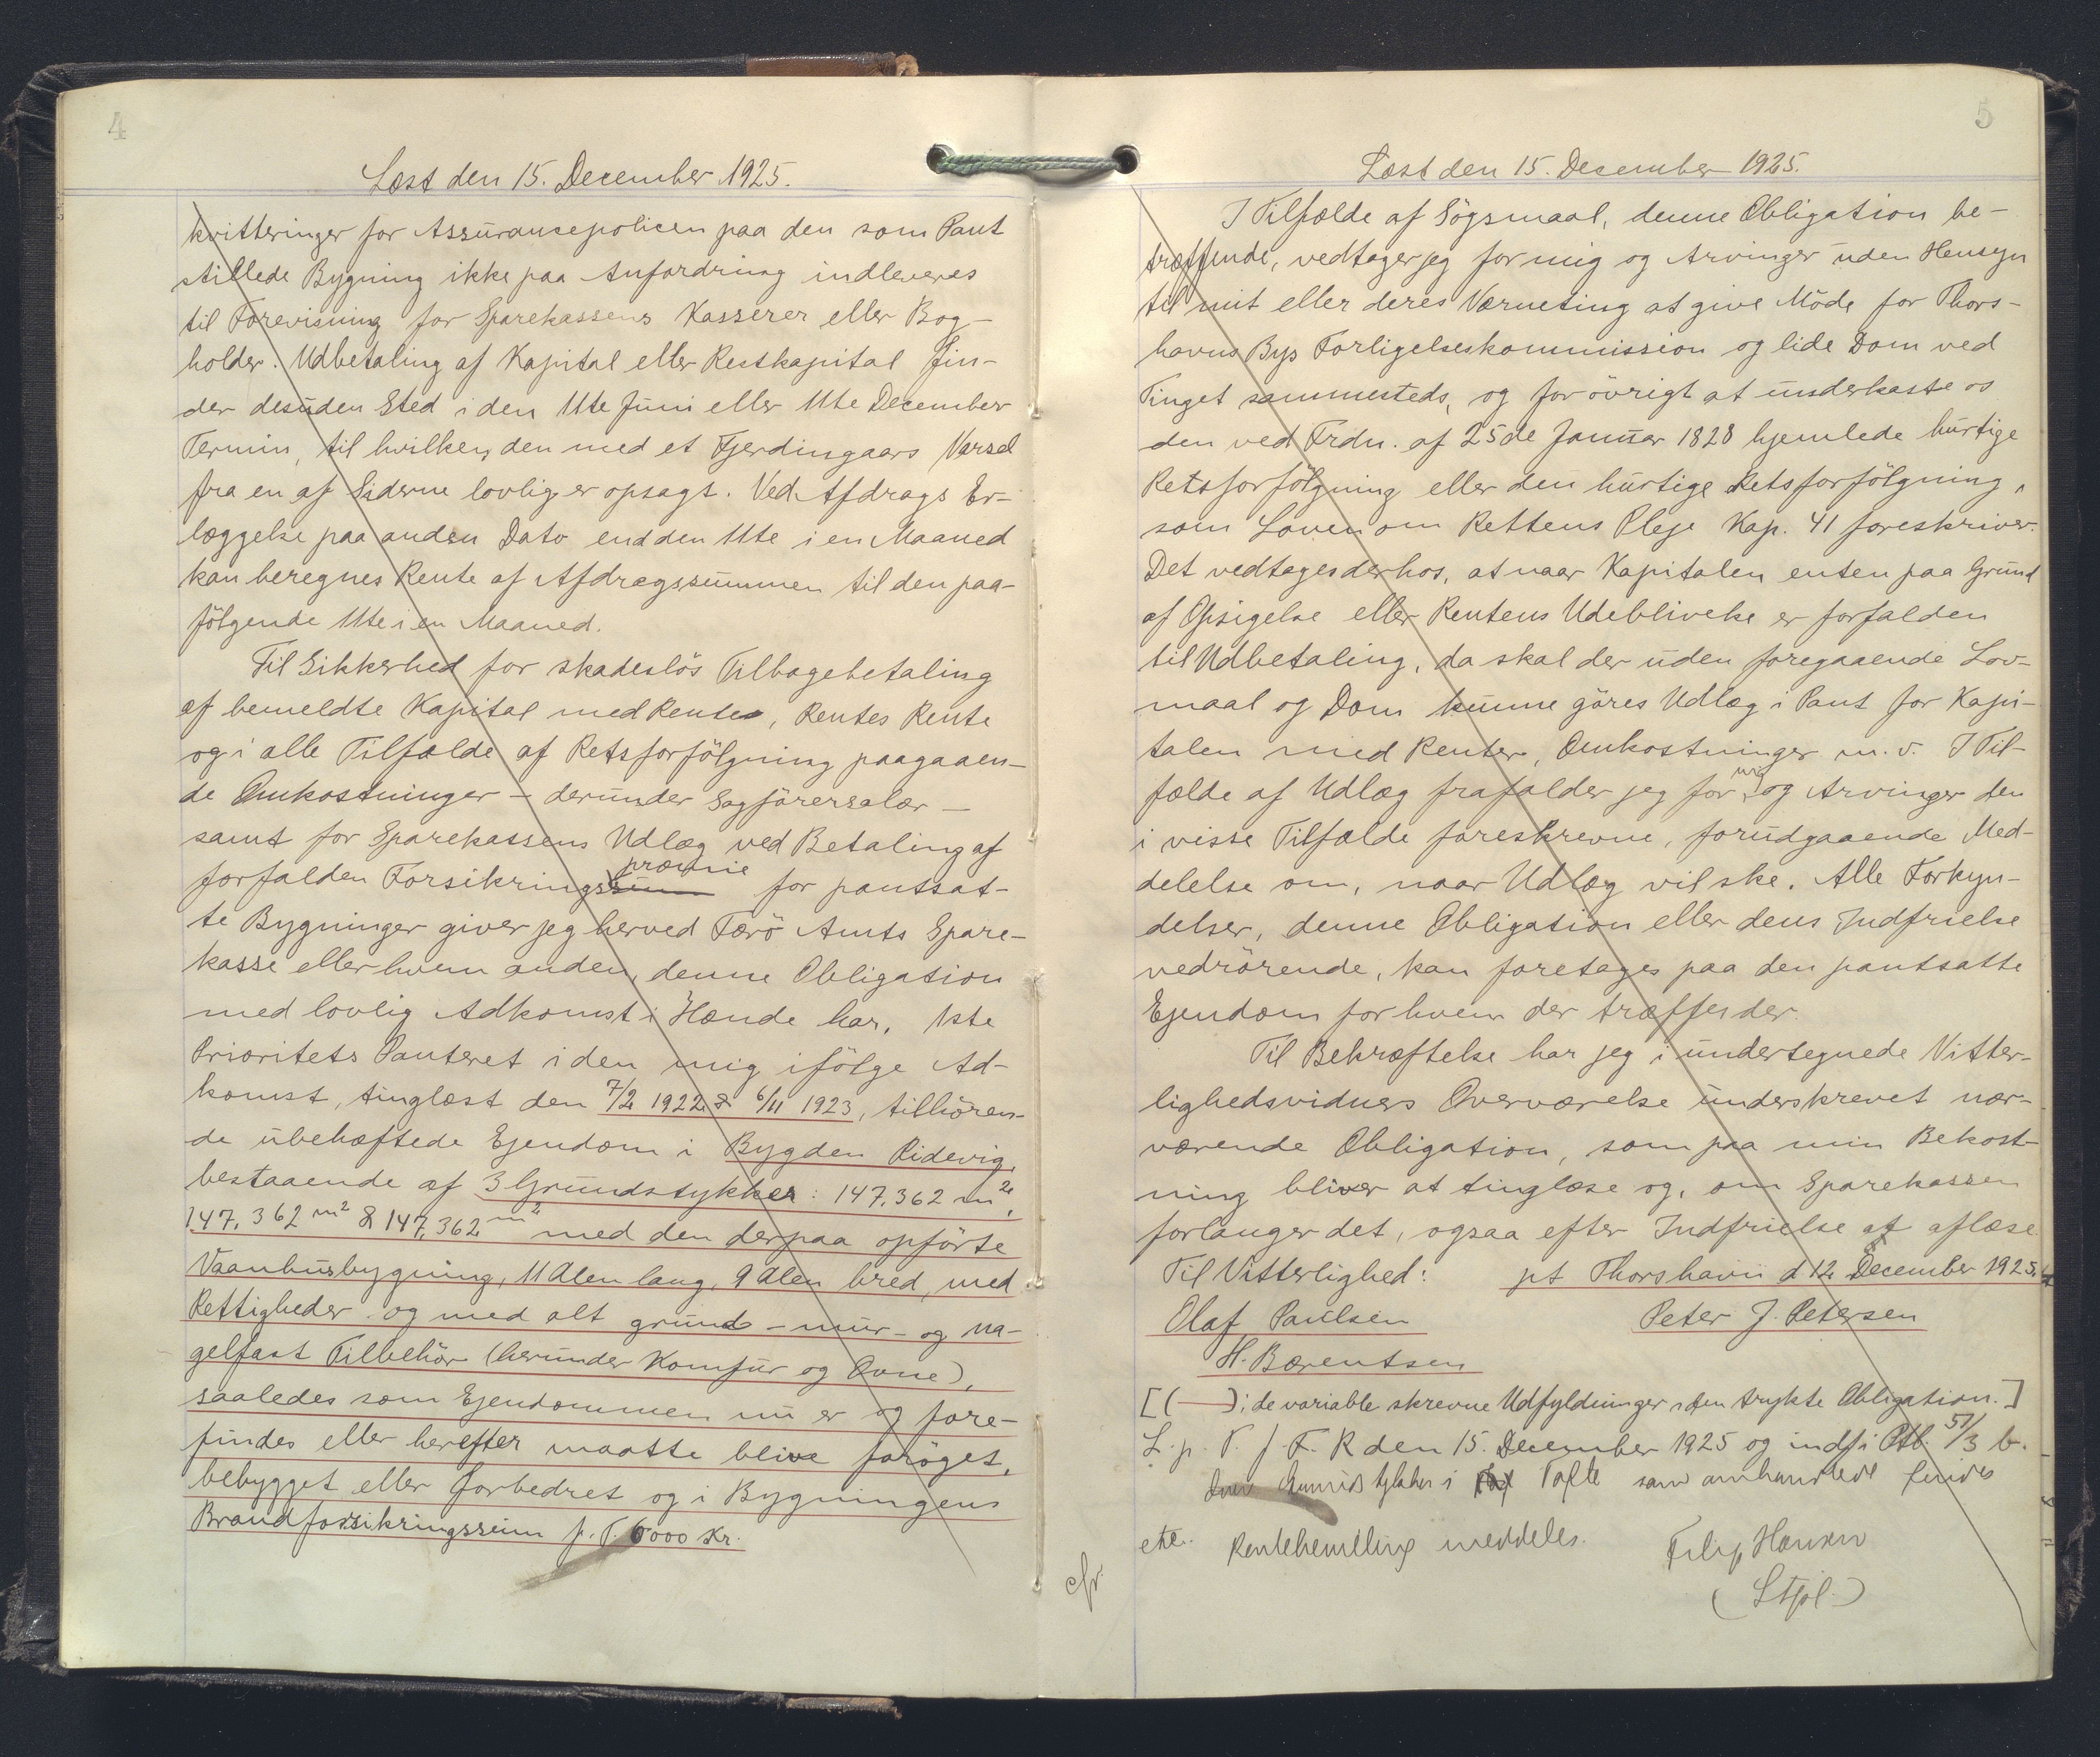 4
Læst den 15. December 1925.
kvitteringer for Assurancepolicen paa den som Pant
stillede Bygning ikke paa Anfordring indleveres
til Forevisning for Sparekassens Kasserer eller Bog-
holder. Udbetaling af Kapital eller Restkapital fin-
der desuden Sted i den 11te Juni eller 11te December
Termin, til hvilken den med et Fjerdingaars Varsel
fra en af Siderne lovlig er opsagt. Ved Afdrags Er-
læggelse paa anden Dato end den 11te i en Maaned
kan beregnes Rente af Afdragssummen til den paa-
følgende 11te i en Maaned.
Til Sikkerhed for skadesløs Tilbagebetaling
af bemeldte Kapital med Renter, Rentes Rente
og i alle Tilfælde af Retsforfølgning paagaaen-
de Omkostninger – derunder Sagførersalær –
samt for Sparekassens Udlæg ved Betaling af
forfalden Forsikringssum præmie for pantsat-
te Bygninger giver jeg herved Færø Amts Spare-
kasse eller hvem anden, denne Obligation
med lovlig Adkomst i Hænde har, 1ste
Prioritets Panteret i den mig ifølge Ad-
komst, tinglæst den 7/2 1922 & 6/11 1923, tilhøren-
de ubehæftede Ejendom i Bygden Videvig,
bestaaende af 3 Grundstykker: 147,362 m²,
147,362 m² & 147,362 m² med den derpaa opførte
Vaanhusbygning, 11 Alen lang, 9 Alen bred, med
Rettigheder og med alt grund-mur- og na-
gelfast Tilbehør (herunder Komfur og Ovne),
saaledes som Ejendommen nu er og fore-
findes eller herefter maatte blive forøget,
bebygget eller forbedret og i Bygningens
Brandforsikringssum p. T. 6000 Kr.
5
Læst den 15. December 1925.
I Tilfælde af Søgsmaal, denne Obligation be-
træffende, vedtager jeg for mig og Arvinger uden Hensyn
til mit eller deres Værneting at give Møde for Thors-
havns Bys Forligelseskommission og lide Dom ved
Tinget sammesteds, og for øvrigt at underkaste os
den ved Frdn. af 25de Januar 1828 hjemlede hurtige
Retsforfølgning eller den hurtige Retsforfølgning,
som Loven om Rettens Pleje Kap. 41 foreskriver.
Det vedtages derhos, at naar Kapitalen enten paa Grund
af Opsigelse eller Rentens Udeblivelse er forfalden
til Udbetaling, da skal der uden foregaaende Lov-
maal og Dom kunne gøres Udlæg i Pant for Kapi-
talen med Renter, Omkostninger m. v. I Til-
fælde af Udlæg frafalder jeg for mig og Arvinger den
i visse Tilfælde foreskrevne, forudgaaende Med-
delelse om, naar Udlæg vil ske. Alle Forkyn-
delser, denne Obligation eller dens Indfrielse
vedrørende, kan foretages paa den pantsatte
Ejendom for hvem der træffes der.
Til Bekræftelse har jeg i undertegnede Vitter-
lighedsvidners Overværelse underskrevet nær-
værende Obligation, som paa min Bekost-
ning bliver at tinglæse og, om Sparekassen
forlanger det, ogsaa efter Indfrielse at aflæse.
Til Vitterlighed: pt Thorshavn d 12 December 1925.
Olaf Paulsen Peter J. Petersen
H. Bærentsen
[( — ): de variable skrevne Udfyldninger i den trykte Obligation.]
L. p. T. f. F. R den 15. December 1925 og indf i Ptb. 51/3 b.
i Tofte som omhandlet findes
cfr.
etc. meddeles. Filip Hansen
(Stfol.)